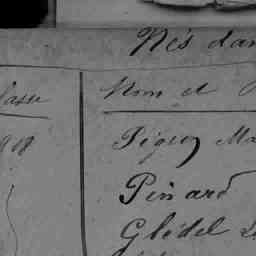 Nés dan
lasse
Nom et
908
Pigeon Ma
Pinard
Glédel